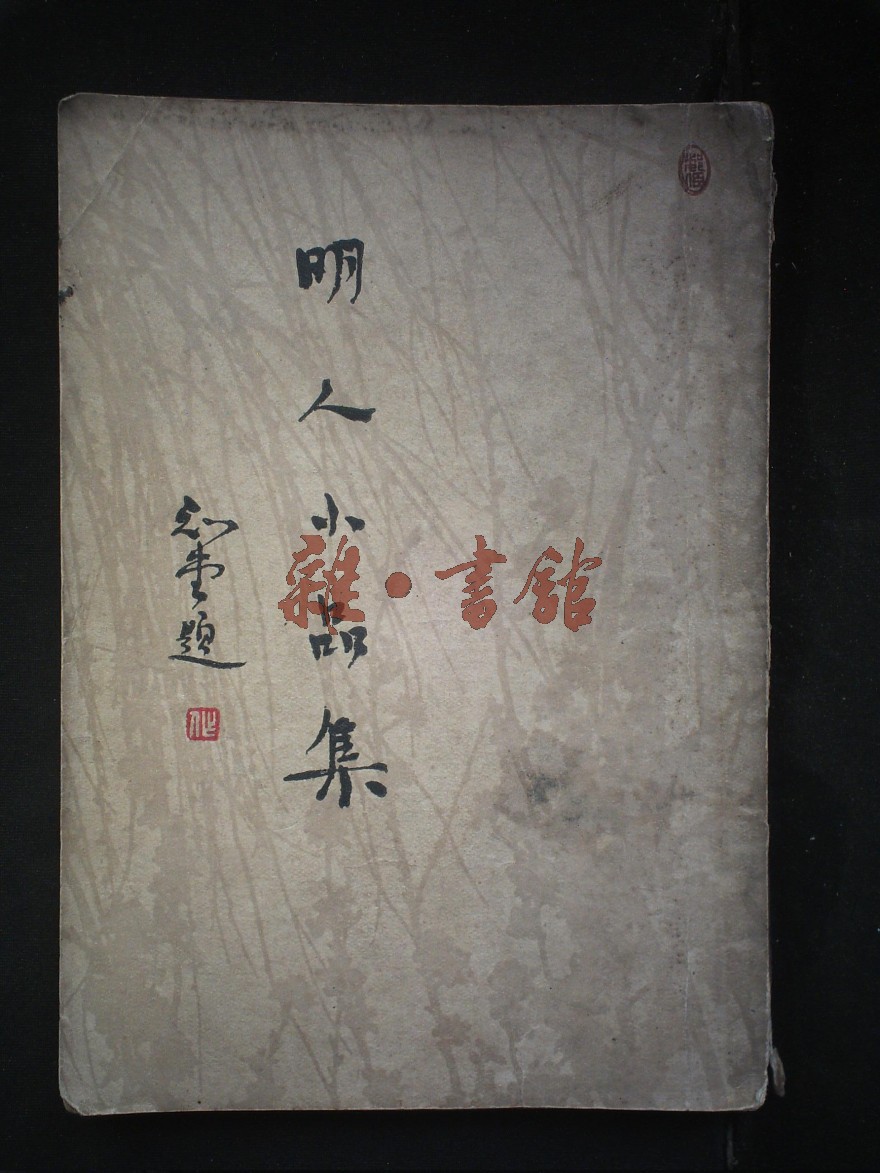 明人小品集
知堂題
雜·書館